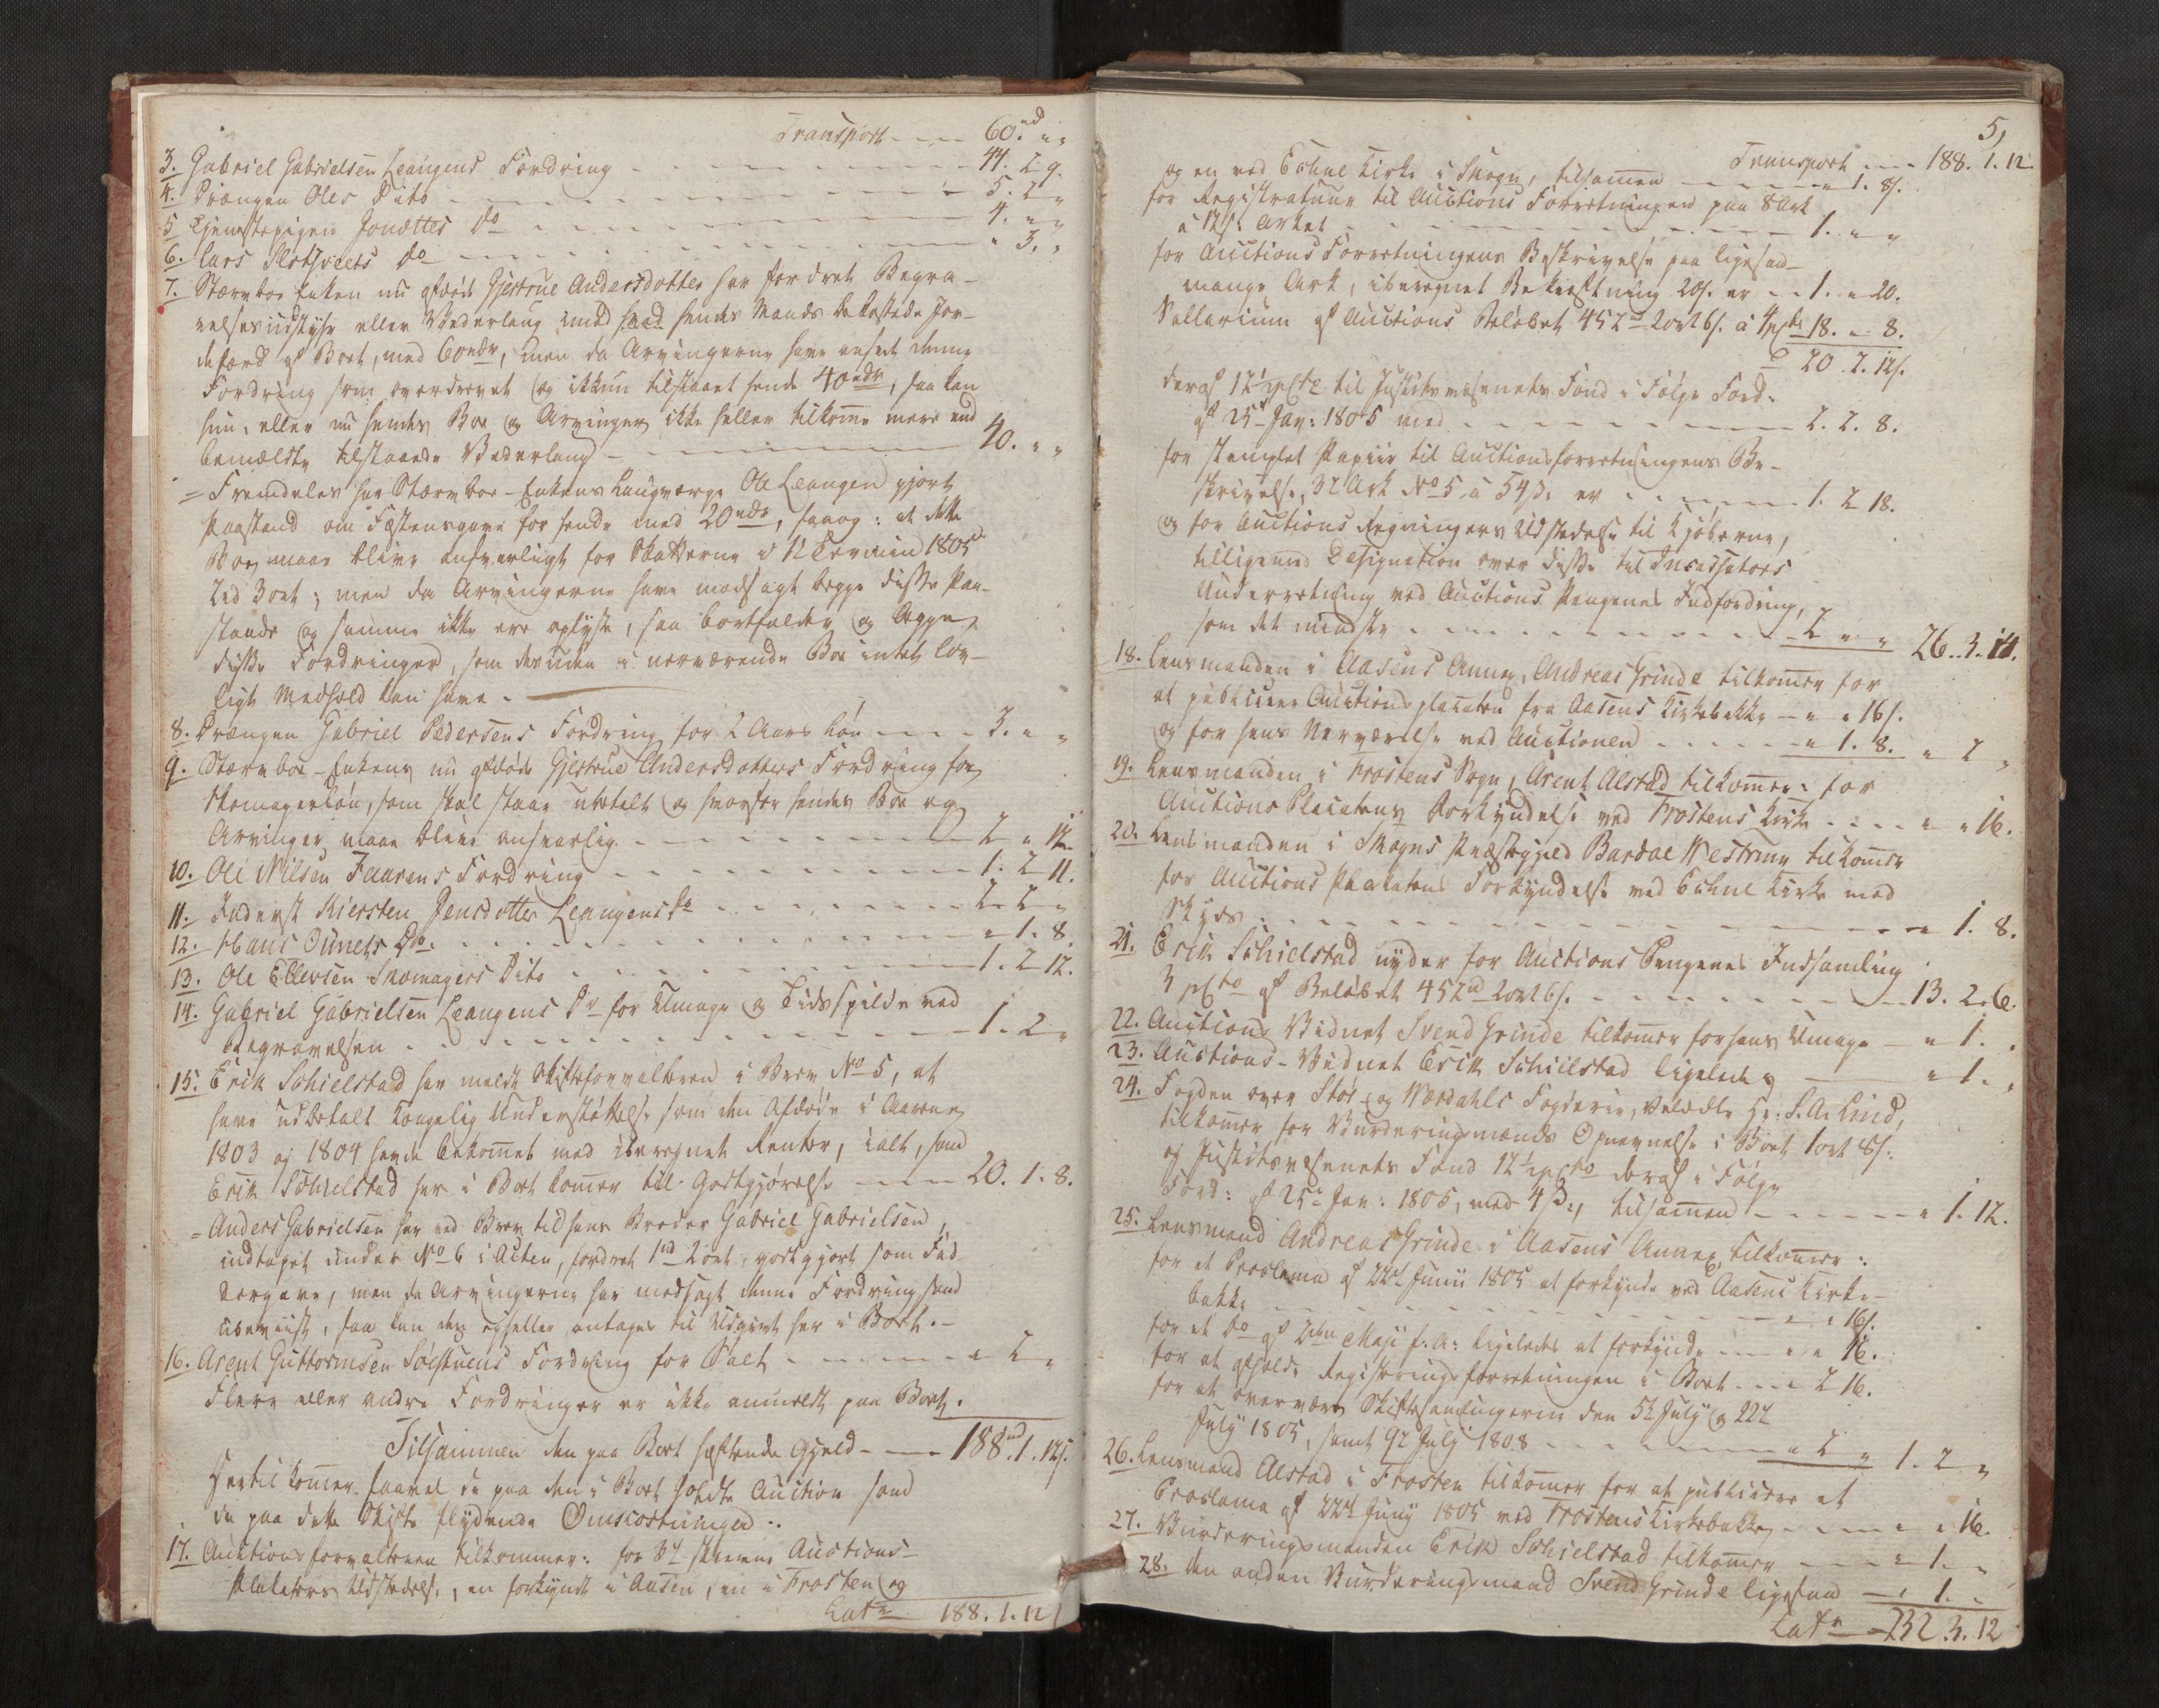 Transport - - - 60.rd " "
3. Gabriel Gabrielsen Leangens Fordring - - - 44. 2. 9.
4. Drængen Oles Dito - - - 5. 2 "
5 Tjenestepigen Jonættes do - - - 4. " "
6. Lars Slotsveets do - - - " 3. "
7. Stervboe Enken nu afdøde Gjertrue Andersdotter har fordret Begra-
velsesudstyr eller Vederlaug imod hendes Mands bekostede Jor-
defærd af Boet, med 60 rdr, men da Arvingerne have anseet denne
Fordring som overdrevet og ikkun tilstaaet hende 40 rdr, saa kan
hun, eller nu hendes Boe og Arvinger ikke heller tilkomme mere end
bemældte tilstaaede Vederlaug - - - 40. " "
= Fremdeles har Stervboe-Enkens Laugværge Ole Leangen gjort
Paastand om Fæstensgave for hende med 20 rdr, saaog: at dette
Boe maae blive ansvarligt for Skatterne i 1te Termin 1805
ved Boet; men da Arvingerne have modsagt begge disse Paa-
stande og samme ikke ere oplyste, saa bortfalder og begge
disse Fordringer, som desuden i nærværende Boe intet lov-
ligt Medhold kan have.
8. Drængen Gabriel Pedersens Fordring for 2 Aars Løn - - - 3. " "
9. Stervboe-Enkens nu afdøde Gjertrue Andersdotters Fordring for
Skomagerløn, som skal staae ubetalt og hvorfor hendes Boe og
Arvinger maae blive ansvarlig - - - 2 " 12.
10. Ole Nilsen Faarens Fordring - - - 1. 2 11.
11. Inderst Kiersten Jensdotter Leangens do - - - 2. 2 "
12. Hans Dunets Do. - - - " 1. 8.
13. Ole Ellevsen Skomagers Dito - - - 1. 2 12.
14. Gabriel Gabrielsen Leangens Do for Umage og Tidsspilde ved
Begravelsen - - - 1. 2 "
15. Erik Schielstad har meldt Skifteforvalteren i Brev No 5, at
have udbetalt Kongelig Understøttelse som den Afdøde i Aarene
1803 og 1804 havde bekommet med iberegnet Renter, ialt, som
Erik Schielstad her i Boet kommer til Godtgjørelse - - - 20. 1. 8.
= Anders Gabrielsen har ved Brev til hans Broder Gabriel Gabrielsen,
indtaget under No 6 i Acten, fordret 1 rd 2 ort godtgjort som Fad-
dergave, men da Arvingerne har modsagt denne Fordring som
ubeviist, saa kan den ei heller antages til Udgivt her i Boet.-
16. Arent Guttormsen Søestuens Fordring for Salt - - - " 2 "
Flere eller andre Fordringer er ikke anmeldt paa Boet.
Tilsammen den paa Boet hæftende Gjeld - - - 188rd. 1. 12s.
Hertil kommer saavel de paa den i Boet holdte Auction som
de paa dette Skifte flydende Omkostninger:
17. Auctionsforvalteren tilkommer: for 3de skrevne Auctions-
Plakaters Udstedelse, en forkyndt i Aasen, en i Frosten og
Lats 188. 1. 12
5,
Transport - - - 188. 1. 12.
og en ved Echne Kirke i Skogn, tilsammen - - - " 1. 8s.
for Registratuur til Auctions Forretningen paa 8 Ark
a 12s. Arket - - - 1. " "
for Auctions Forretningens Beskrivelse paa ligesaa
mange Ark, iberegnet Bekræftning 20s. er - - 1. " 20.
Sallarium af Auctions Beløbet 452rd 2 ort 6s. a 4 pCto 18. " 8.
20. 2. 12s.
deraf 12½ pCto til Justitsvæsenets Fond i Følge Ford:
af 25de Jan: 1805 med - - - 2. 2. 8.
for stemplet Papiir til Auctionsforretningens Be-
skrivelse, 3de Ark No 5 a 54 s. er - - - 1. 2 18.
og for Auctions Regningers Udstedelse til Kjøberne,
tilligemed Designation over disse til Incassators
Underretning ved Auctions Pengenes Indfordring,
som det mindste - - - 2 " " 26. 3. 14.
18. Lensmanden i Aasens Annex, Andreas Grinde tilkommer for
at publicere Auctionsplacaten fra Aasens Kirkebakke - " " 16s.
og for hans Nærværelse ved Auctionen - - - " 1. 8. " 2 "
19. Lensmanden i Frostens Sogn, Arent Alstad tilkommer: for
Auctions Placatens Forkyndelse ved Frostens Kirke - - - " " 16.
20. Lensmanden i Skogns Præstegjeld Bardal Westrum tilkommer
for Auctions Plakatens Forkyndelse ved Echne Kirke med
Skyds - - - " 1. 8.
21. Erik Schielstad nyder for Auctions Pengenes Indsamling
3 pCto af Beløbet 452rd 2 ort 6s. - - - 13. 2. 6.
22. Auctions Vidnet Svend Grinde tilkommer for hans Umage - " 1. "
23. Auctions-Vidnet Erik Schielstad ligeledes - " 1. "
24. Fogden over Stør og Værdahls Fogderie, Velædle Hr: S. A. Lind,
tilkommer for Vurderingsmænds Opnævnelse i Boet 1 ort 8s.
og Justitsvæsenets Fond 12½ pCto deraf i Følge
Ford: af 25de Jan: 1805, med 4 s., tilsammen - - - " 1. 12.
25. Lensmand Andreas Grinde i Aasens Annex, tilkommer:
for et Proclama af 22de Junii 1805 at forkynde ved Aasens Kirke-
bakke - - - " " 16s.
for et do af Maji s. A: ligeledes at forkynde - - - " " 16.
for at afholde Registreringsforretningen i Boet - - - 2 16.
for at overvære Skiftesamlingerne den 5te July og 22de
July 1805, samt 9de July 1808 - - - " 2 " 1. 2 "
26. Lensmand Alstad i Frosten tilkommer for at publicere et
Proclama af 22de Juny 1805 ved Frostens Kirkebakke - - - " " 16.
27. Vurderingsmanden Erik Schielstad tilkommer - - - " 1. "
28. den anden Vurderingsmand Svend Grinde ligesaa - " 1. "
Lats - 232. 3. 12